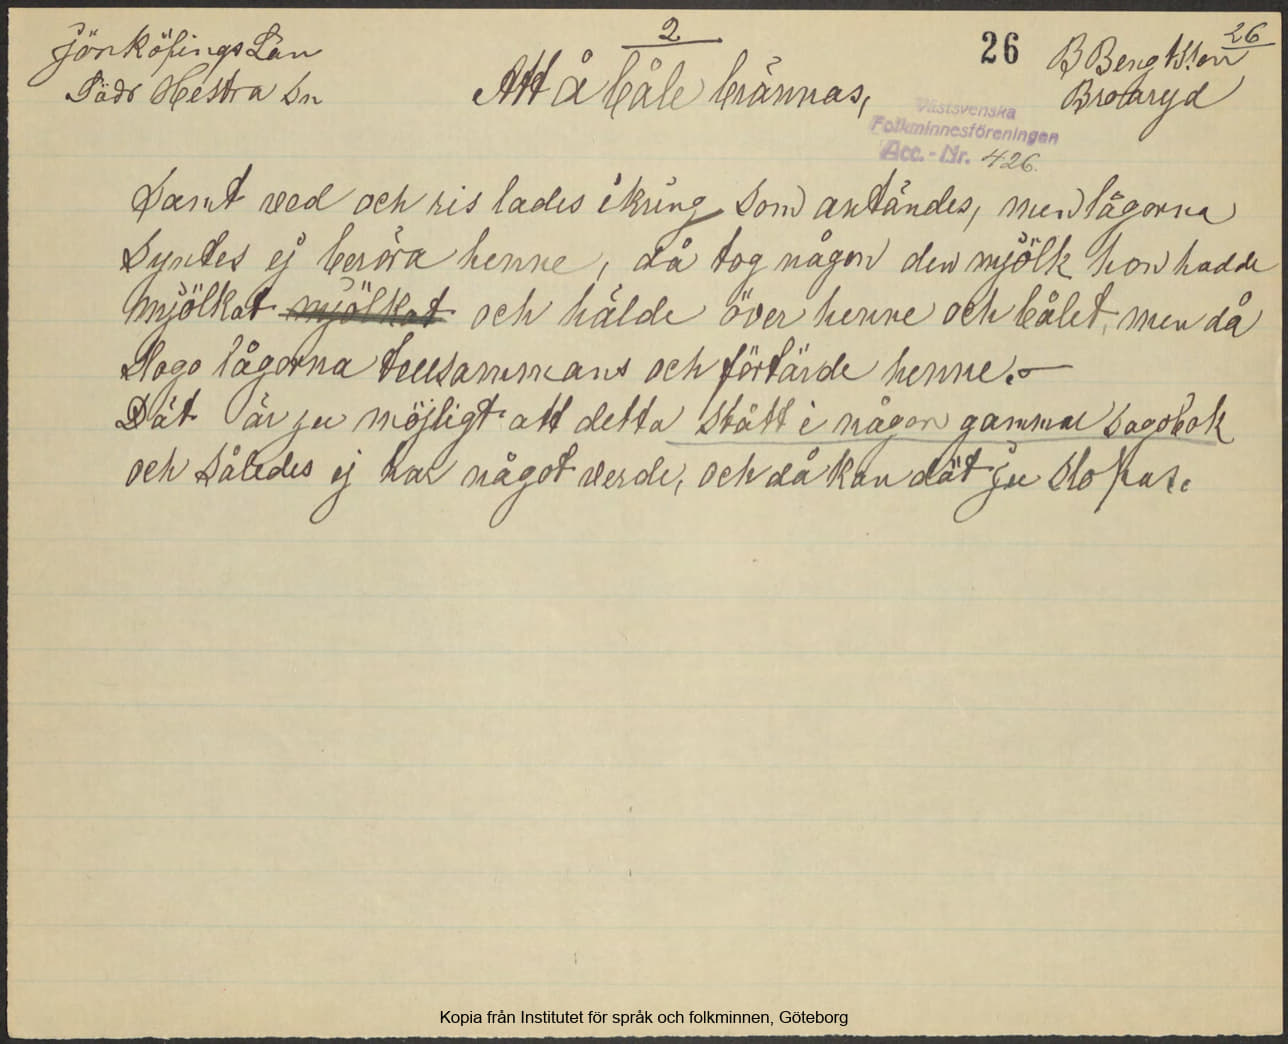 2
26
26
Jönköpings Län
B Bengtsson
Södr Hestra Sn
Att å båle brännas,
Broaryd
Västsvenska
Folkminnesföreningen
Acc.-Nr. 426.
Samt ved och ris lades ikring som antändes, men lågorna
syntes ej beröra henne, då tog någon den mjölk hon hadde
mjölkat mjölkat och hälde över henne och bålet, men då
slogo lågorna tillsammans och förtärde henne.–
Dät är ju möjligt att detta stått i någon gammal sagobok
och således ej har något verde, och då kan dät ju slopas.
Kopia från Institutet för språk och folkminnen, Göteborg